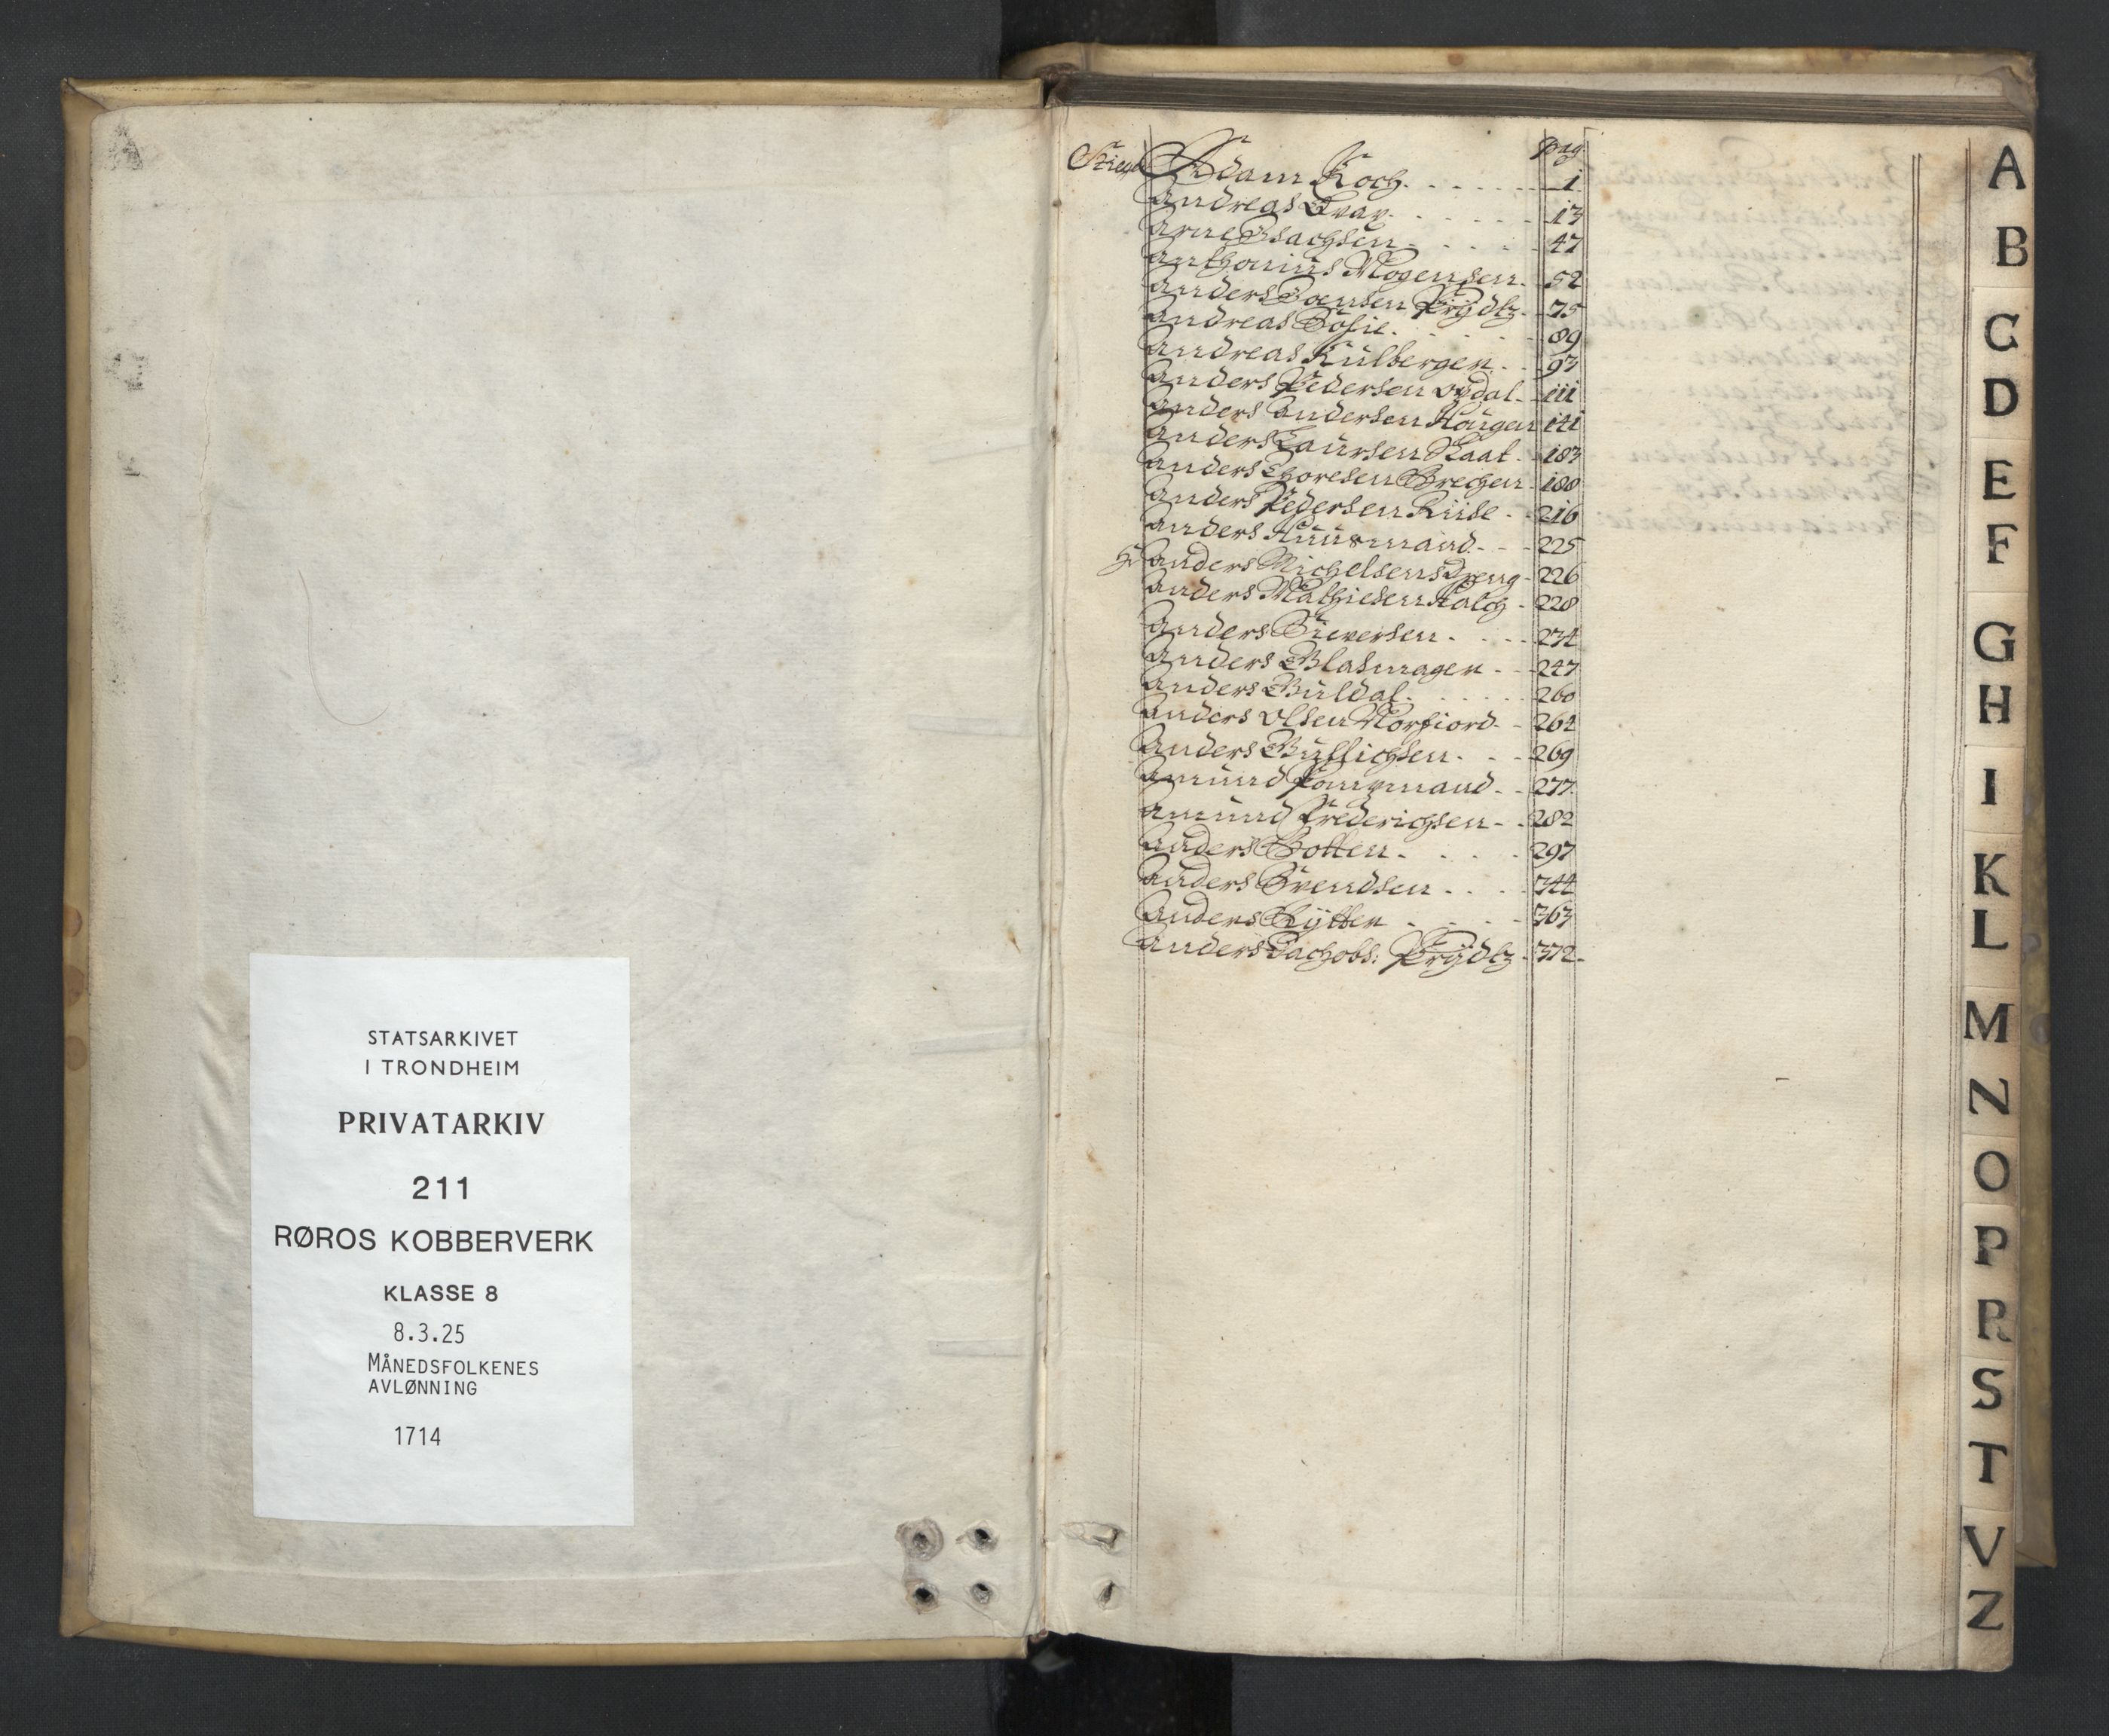 STATSARKIVET
I TRONDHEIM
PRIVATARKIV
211
RØROS KOBBERVERK
KLASSE 8
8.3.25
MÅNEDSFOLKENES
AVLØNNING
1714
pag
Adam Koch 1
Andreas 13
Arne Isachsen 47
Anthonius Mogensen 52
Anders Joensen Prÿdtz 75
Andreas 89
Andreas Külberger 93
Anders Pedersen opdal 111
Anders Andersen Haugen 141
Anders Laursen 183
Anders Thoresen Brechen 188
Anders Pedersen Riise 216
Anders Huusmand 225
Anders Michelsen 226
Anders Mathiesen 228
Anders Siversen 234
Anders Blasmager 247
Anders Büldal 260
Anders olsen Norfiord 264
Anders 269
Amund 277
Amund Frederichsen 282
Anders Botten 297
Anders Svendsen 344
Anders Rÿtter 363
Anders Jachobs: Prÿdtz 372
A
B
C
D
E
F
G
H
I
K
L
M
N
O
P
R
S
T
V
Z